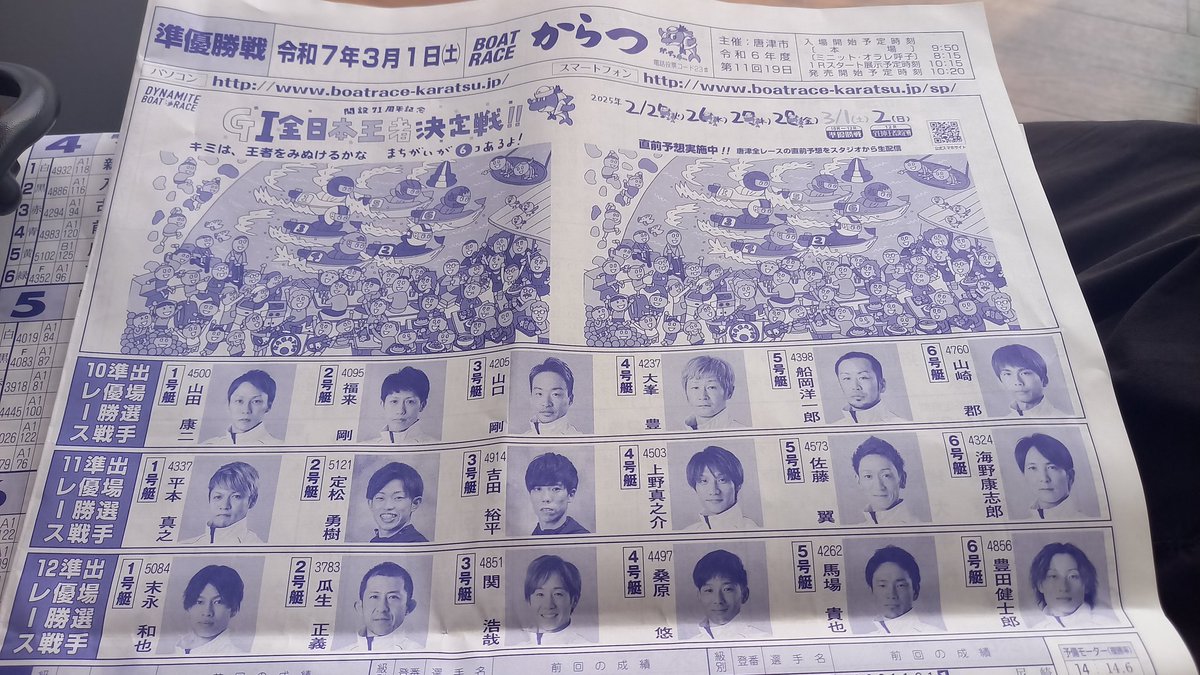 準優勝戦
令和7年3月1日(土)
BOAT RACE からつ
電話投票コード23#
主催:唐津市
令和6年度
第11回19日
入場開始予定時刻
(本場) 9:50
(ミニット・オラレ呼子) 8:15
1Rスタート展示予定時刻 10:15
発売開始予定時刻 10:20
パソコン http://www.boatrace-karatsu.jp/
スマートフォン http://www.boatrace-karatsu.jp/sp/
DYNAMITE BOAT RACE
開設71周年記念
GI全日本王者決定戦!!
2025年 3/1(土) 2(日)
準優勝戦
キミは、王者をみぬけるかな まちがいが6つあるよ!
直前予想実施中!! 唐津全レースの直前予想をスタジオから生配信
10レース 準優勝戦 出場選手
1号艇 4500 山田 康二
2号艇 4095 福来 剛
3号艇 4205 山口 剛
4号艇 4237 大峯 豊
5号艇 4398 船岡洋一郎
6号艇 4760 山崎 郡
11レース 準優勝戦 出場選手
1号艇 4337 平本 真之
2号艇 5121 定松 勇樹
3号艇 4914 吉田 裕平
4号艇 4503 上野真之介
5号艇 4573 佐藤 翼
6号艇 4324 海野康志郎
12レース 準優勝戦 出場選手
1号艇 5084 末永 和也
2号艇 3783 瓜生 正義
3号艇 4851 関 浩哉
4号艇 4497 桑原 悠
5号艇 4262 馬場 貴也
6号艇 4856 豊田健士郎
級別 登番 選手名 前回の成績
予備モーター(複勝率)
14 14.6
4
1 白 4932 A1 118
2 黒 4886 A1 116
3 赤 4294 A1 94
4 青 4983 A1 120
5 黄 5102 B1 125
6 緑 F 4352 A1 96
5
白 4019 A1 84
黒 F 4083 A1 87
3918 A1 81
4445 A1 100